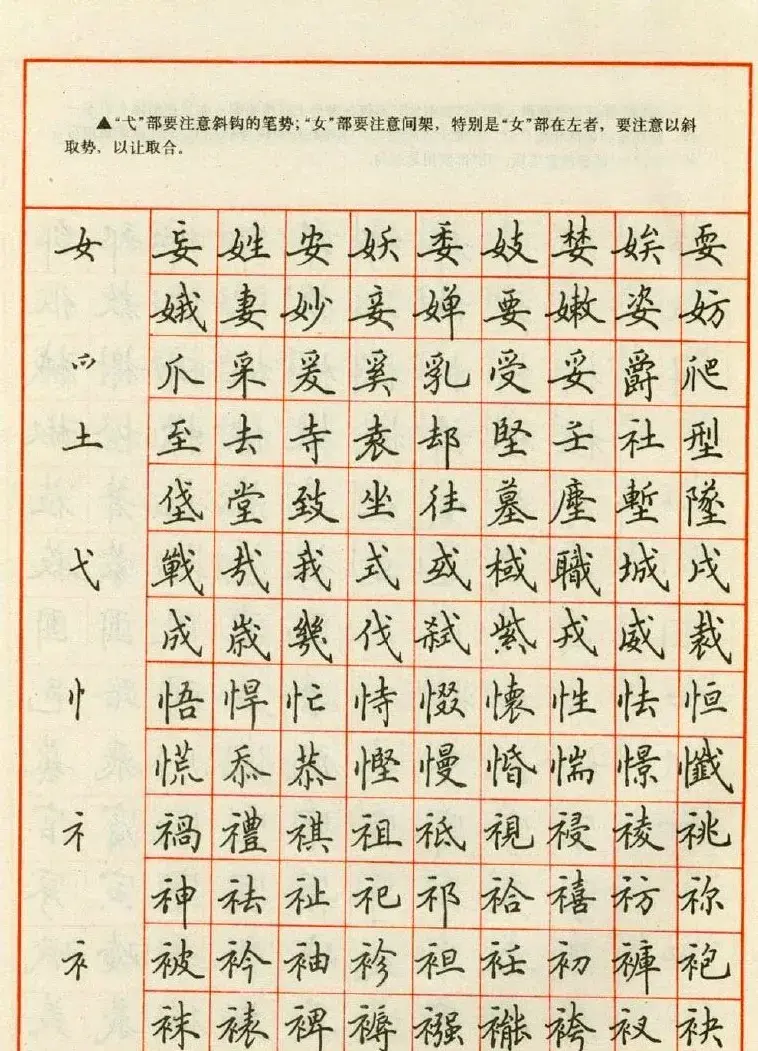 ▲“弋”部要注意斜钩的笔势；“女”部要注意间架，特别是“女”部在左者，要注意以斜
取势，以让取合。
女 妄 姓 安 妖 委 妓 婪 娭 耍
娥 妻 妙 妾 婵 要 嫩 姿 妨
爫 爪 采 爰 奚 乳 受 妥 爵 爬
土 至 去 寺 袁 却 坚 壬 社 型
垡 堂 致 坐 往 墓 塵 塹 墜
弋 戰 哉 我 式 或 棫 職 城 戍
成 歲 幾 伐 弑 戎 威 裁
忄 悟 悍 忙 恃 惙 懷 性 怯 恒
慌 忝 恭 慳 慢 惛 惴 憬 懺
礻 禍 禮 祺 祖 祇 視 祲 祾 祧
神 祛 祉 祀 祁 祫 禧 祊 祢
衤 被 衿 袖 袗 袒 衽 初 褲 袍
袜 裱 裨 褥 襁 袴 衩 袂